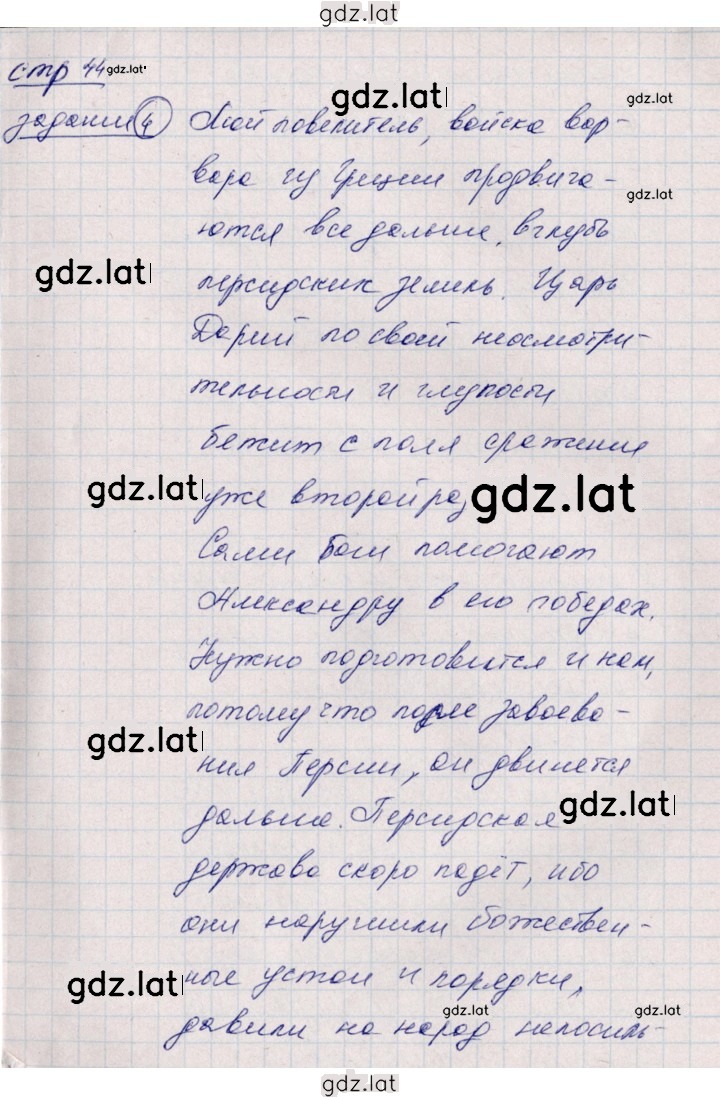 gdz.lat
стр 44 gdz.lat
gdz.lat
gdz.lat
задании 4 Мой повелитель, войска вар-
вара из Греции продвига-
gdz.lat
ются все дальше, вглубь
gdz.lat
персидских земель. Царь
Дарий по своей неосмотри-
тельности и глупости
бежит с поля сражения
gdz.lat
уже второй раз
gdz.lat
Сами боги помогают
Александру в его победах.
Нужно подготовится и нам,
потому что после завоева-
gdz.lat
ния Персии, он двинется
gdz.lat
дальше. Персидская
держава скоро падёт, ибо
они нарушили божествен-
gdz.lat
ные устои и порядки,
gdz.lat
gdz.lat
давили на народ непосиль-
gdz.lat